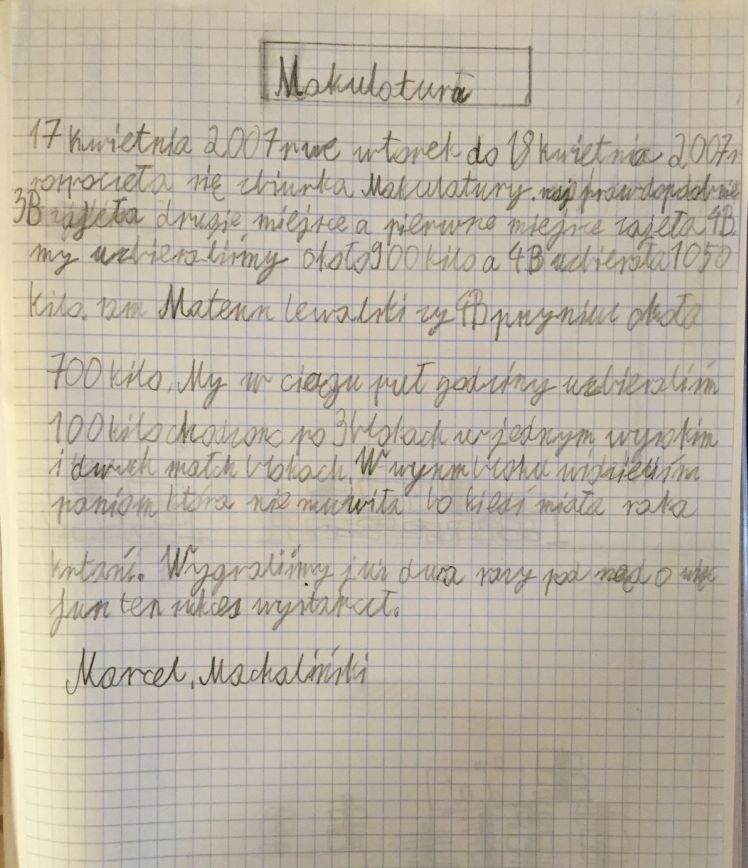 Makulatura
17 kwietnia 2007r we wtorek do 18 kwietnia 2007r
rozpocieła się zbiurka Makulatury. najprawdopodobnie
3B zajeła drugie miejsce a pierwsze miejsce zajeła 4B.
my uzbieraliśmy około 900 kilo a 4B uzbierała 1050
kilo. sam Lewalski zy 4B pszyniusł około
700 kilo. My w ciągu puł godziny uzbieraliśm
100 kilo chodzonc po 3 blokach w jednym wysokim
i dwuch małch blokach. W wysokim bloku widzieliśm
paniom która nie muwiła bo kiedś miała raka
krtani. Wygraliśmy już dwa razy pod rząd o więc
ten sukces wystarczł.
Marcel, Machaliński